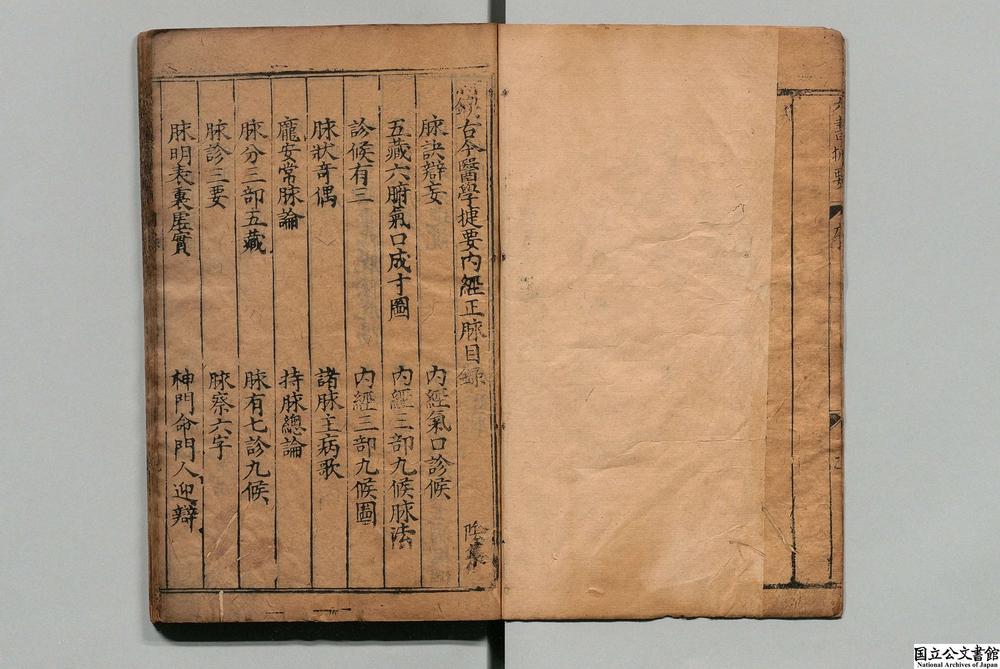 錄古今醫學捷要内經正脉目録
脉訣辯妄　内經氣口診候
五藏六腑氣口成寸圖　内經三部九候脉法
診候有三　内經三部九候圖
脉狀奇偶　諸脉主病歌
龐安常脉論　持脉總論
脉分三部五藏　脉有七診九候
脉診三要　脉察六字
脉明表裏虛實　神門命門人迎辯
国立公文書館
National Archives of Japan